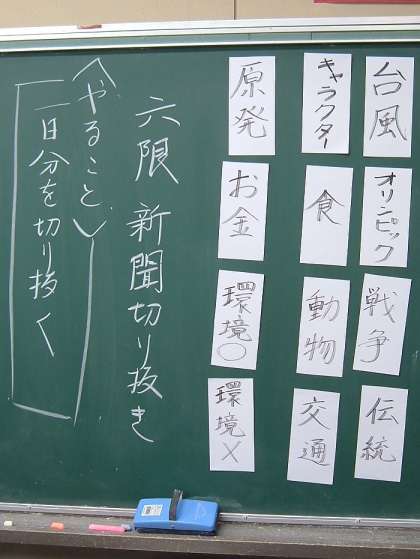 台風
オリンピック
戦争
伝統
キャラクター
食
動物
交通
原発
お金
環境○
環境×
六限 新聞切り抜き
〈やること〉
一日分を切り抜く